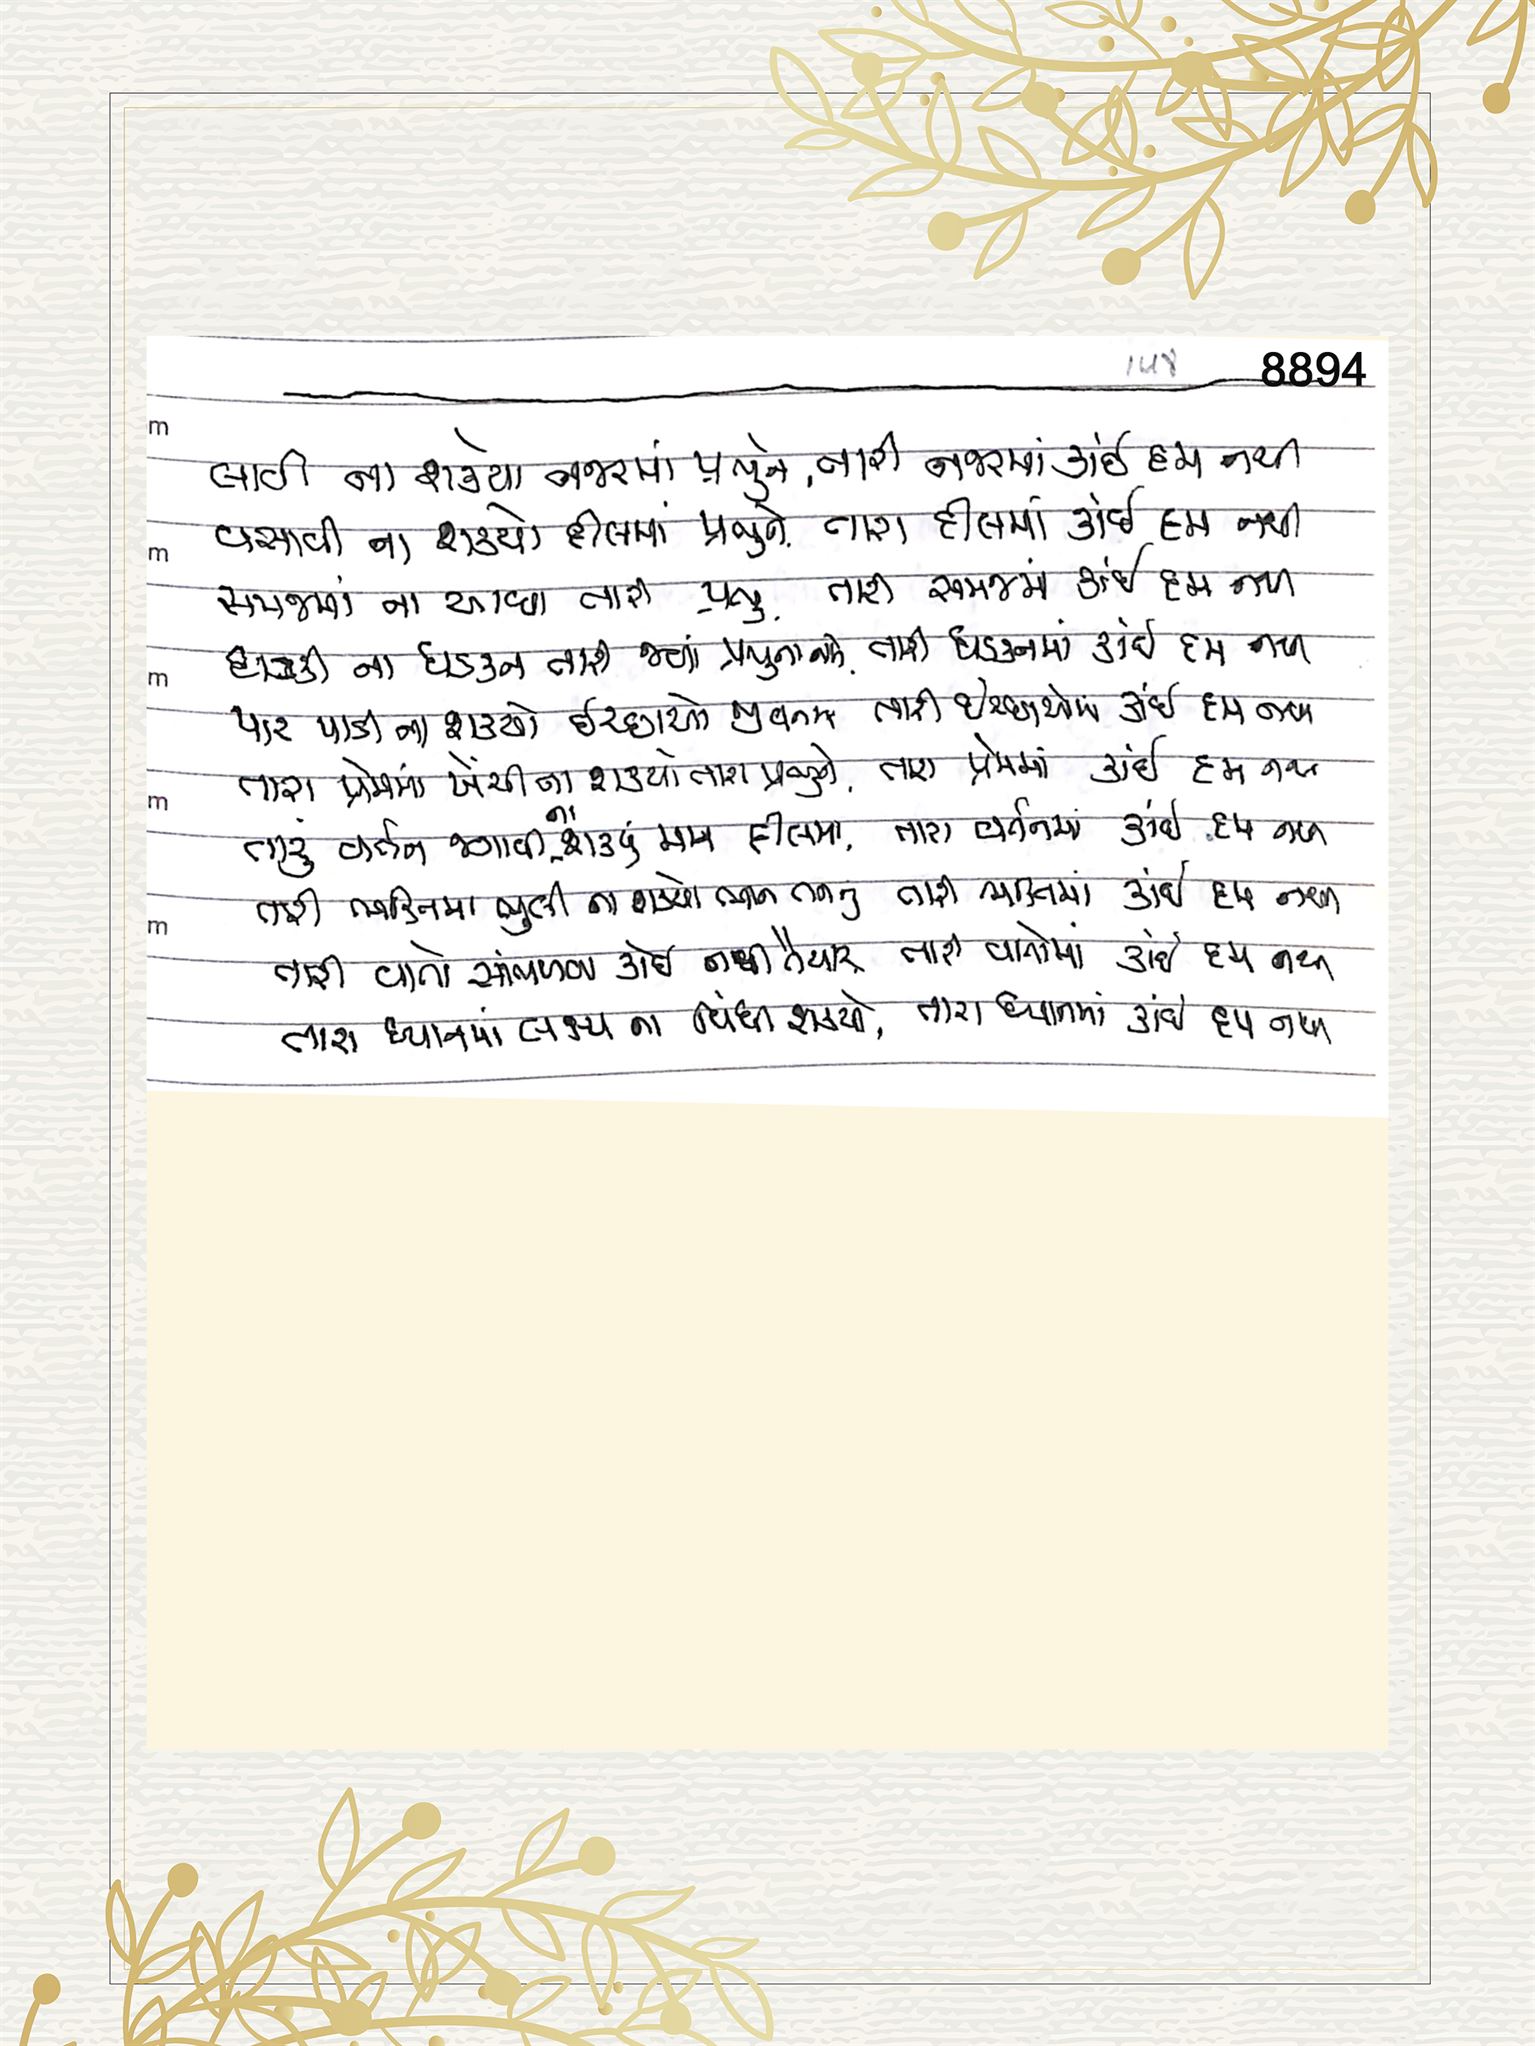 ૧૫૪ 8894
લાવી ના શક્યો નજરમાં પ્રભુને, તારી નજરમાં કાંઈ દમ નથી
વસાવી ના શક્યો દીલમાં પ્રભુને, તારા દીલમાં કાંઈ દમ નથી
સમજમાં ના આવ્યા તારી પ્રભુ, તારી સમજમાં કાંઈ દમ નથી
ના ધડકન તારી જ્યાં પ્રભુના નામે, તારી ધડકનમાં કાંઈ દમ નથી
પાર પાડી ના શક્યો ઈચ્છાઓ જીવનમાં તારી ઈચ્છાઓમાં કાંઈ દમ નથી
તારા પ્રેમમાં ખેંચી ના શક્યો તારા પ્રભુને, તારા પ્રેમમાં કાંઈ દમ નથી
તારું વર્તન જગાવી ના શક્યું દીલમાં, તારા વર્તનમાં કાંઈ દમ નથી
તારી ભક્તિમાં ભુલી ના શક્યો ભાન તનનું તારી ભક્તિમાં કાંઈ દમ નથી
તારી વાતો સાંભળવા કોઈ નથી તૈયાર, તારી વાતોમાં કાંઈ દમ નથી
તારા ધ્યાનમાં લક્ષ્ય ના વિંધી શક્યો, તારા ધ્યાનમાં કાંઈ દમ નથી
m
m
m
m
m